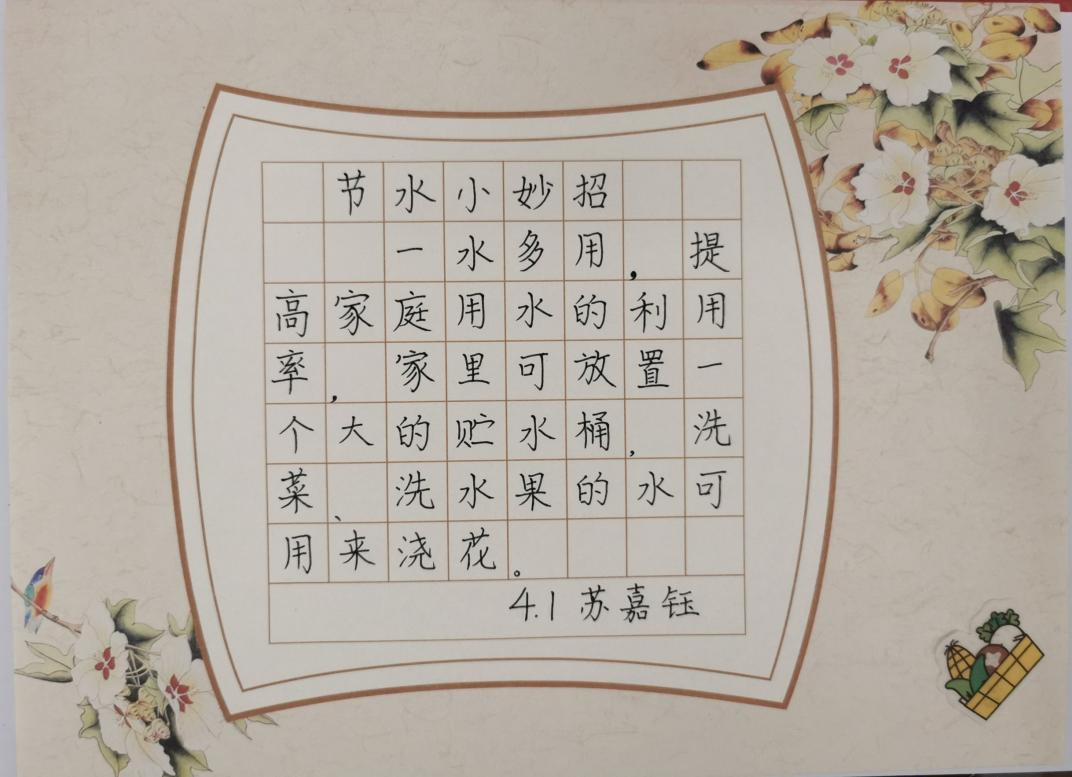 节水小妙招
一水多用,提
高家庭用水的利用
率,家里可放置一
个大的贮水桶,洗
菜、洗水果的水可
用来浇花。
4.1 苏嘉钰